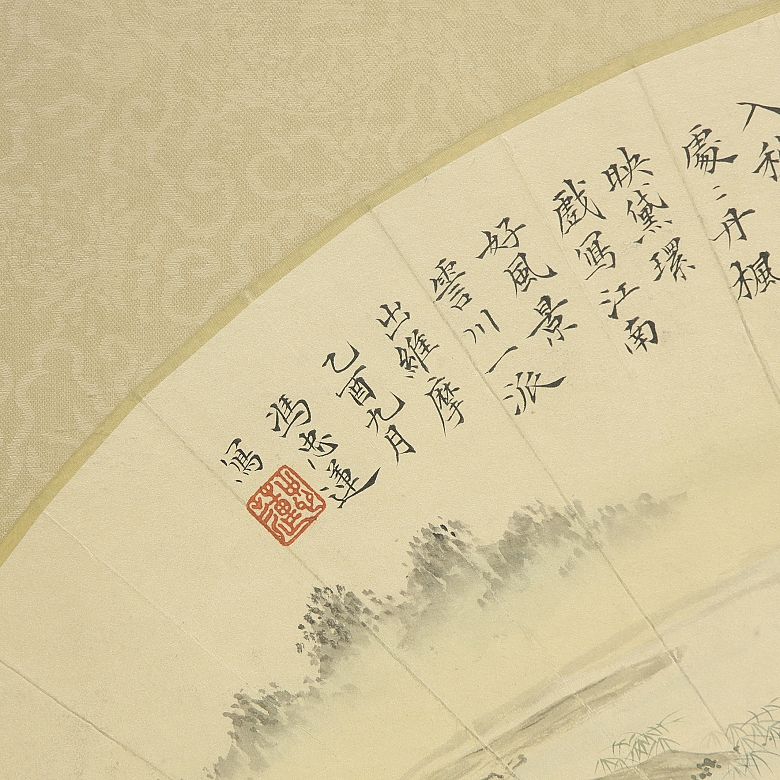 入秋
處〻丹楓
映黛環
戲寫江南
好風景
雲川一派
出維摩
乙酉九月
馮忠蓮
寫
忠蓮